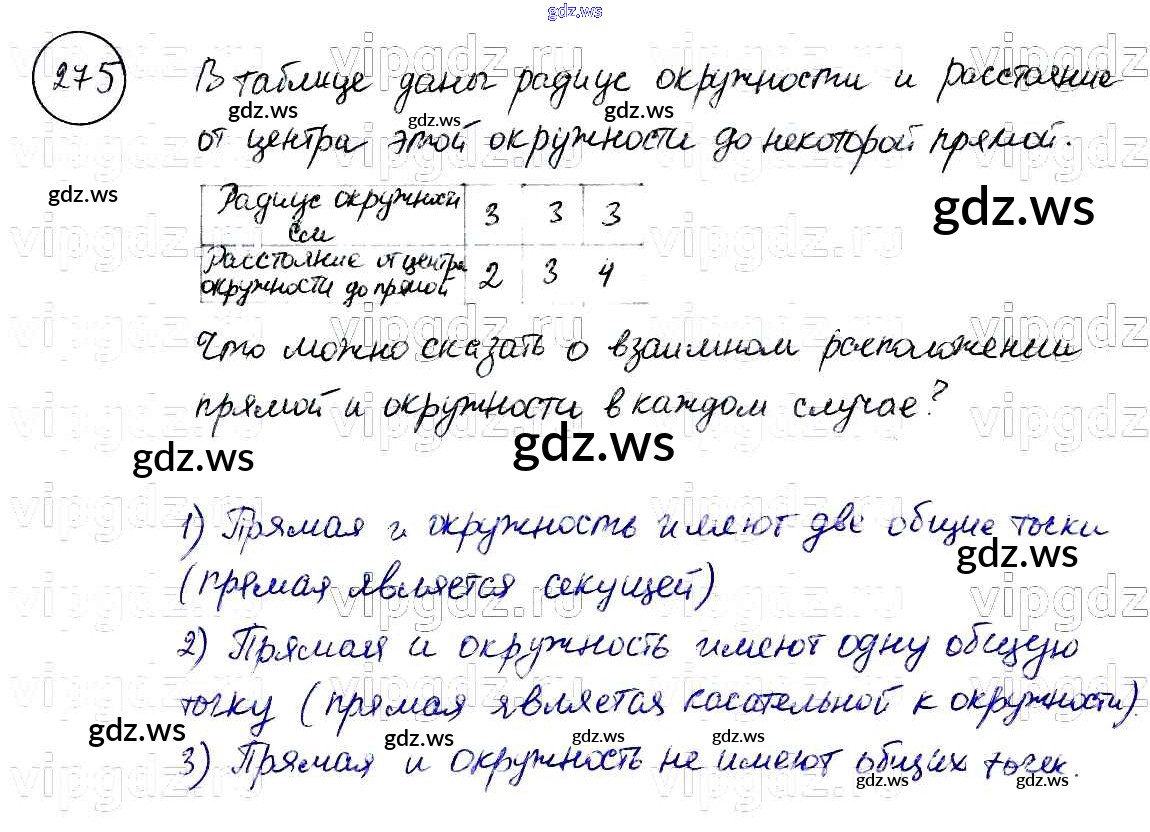 gdz.ws
275
В таблице даны радиус окружности и расстояние
от центра этой окружности до некоторой прямой.
Радиус окружности см 3 3 3
Расстояние от центра окружности до прямой 2 3 4
Что можно сказать о взаимном расположении
прямой и окружности в каждом случае?
1) Прямая и окружность имеют две общие точки
(прямая является секущей)
2) Прямая и окружность имеют одну общую
точку (прямая является касательной к окружности).
3) Прямая и окружность не имеют общих точек.
gdz.ws
gdz.ws
gdz.ws
gdz.ws
gdz.ws
gdz.ws
gdz.ws
gdz.ws
gdz.ws
gdz.ws
gdz.ws
gdz.ws
gdz.ws
gdz.ws
vipgdz